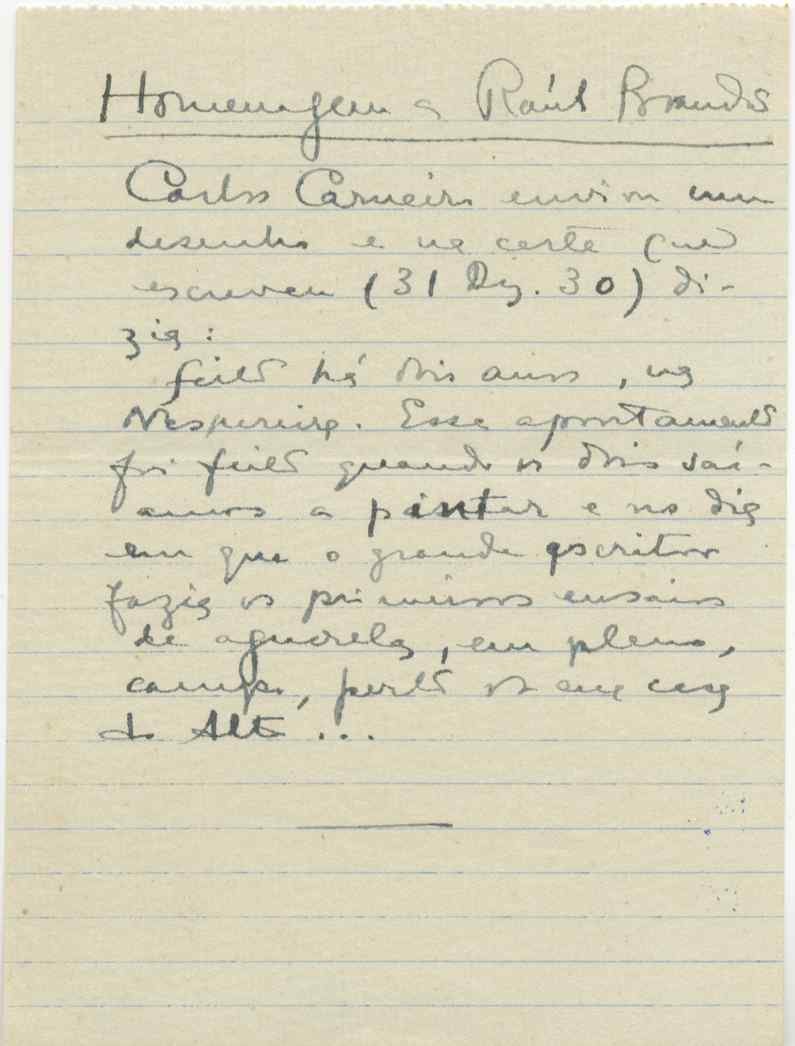 Homenagem a Raúl Brandão
Carlos Carneiro enviou um
desenho e na carta que
escreveu (31 Dez. 30) di-
zia:
feito há dois anos, na
Nespereira. Esse apontamento
foi feito quando os dois saí-
amos a pintar e no dia
em que o grande escritor
fazia os primeiros ensaios
de aguarela, em pleno,
campo, perto da sua casa
do Alto...